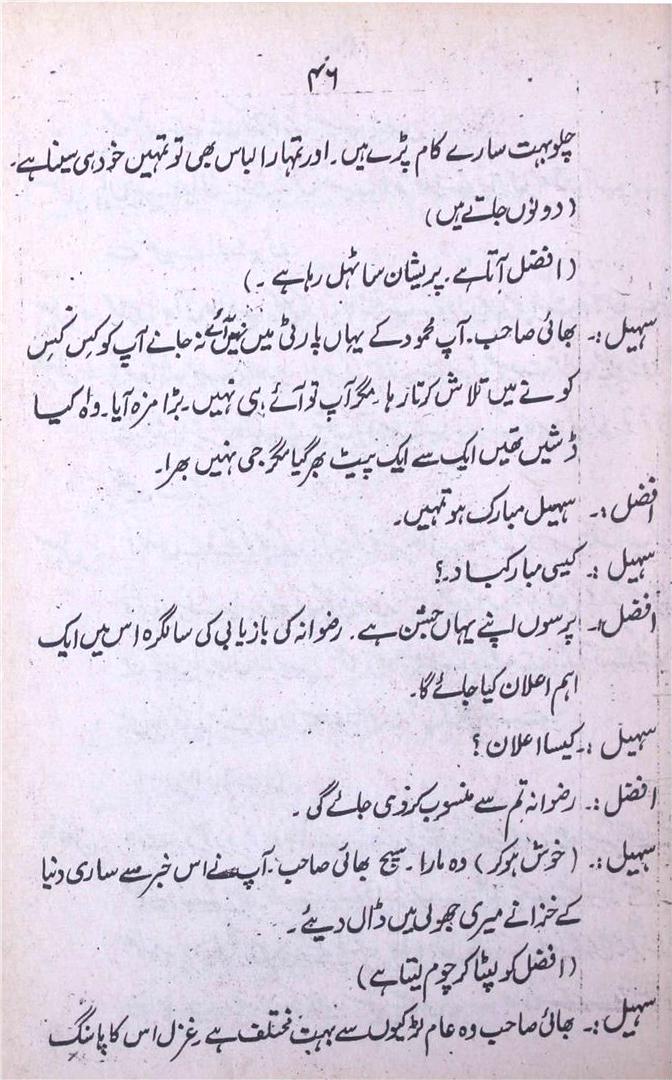 ۴۶
چلو بہت سارے کام پڑے ہیں۔ اور تمہارا لباس بھی تو تمہیں خود ہی سینا ہے۔
(دونوں جاتے ہیں)
(افضل آتا ہے۔ پریشان سا ٹہل رہا ہے۔)
سہیل :۔ بھائی صاحب۔ آپ محمود کے یہاں پارٹی میں نہیں آئے نہ جانے آپ کو کس کس
کونے میں تلاش کرتا رہا۔ مگر آپ تو آئے ہی نہیں۔ بڑا مزہ آیا۔ واہ کیا
ڈشیں تھیں ایک سے ایک پیٹ بھر گیا مگر جی نہیں بھرا۔
افضل :۔ سہیل مبارک ہو تمہیں۔
سہیل :۔ کیسی مبارکباد۔؟
افضل :۔ پرسوں اپنے یہاں جشن ہے۔ رضوانہ کی بازیابی کی سالگرہ اس میں ایک
اہم اعلان کیا جائے گا۔
سہیل :۔ کیسا اعلان ؟
افضل :۔ رضوانہ تم سے منسوب کر دی جائے گی۔
سہیل :۔ (خوش ہو کر) وہ مارا۔ سچ بھائی صاحب۔ آپ نے اس خبر سے ساری دنیا
کے خزانے میری جھولی میں ڈال دیئے۔
(افضل کو لپٹا کر چوم لیتا ہے)
سہیل :۔ بھائی صاحب وہ عام لڑکیوں سے بہت مختلف ہے۔ غزل اس کا پاسنگ